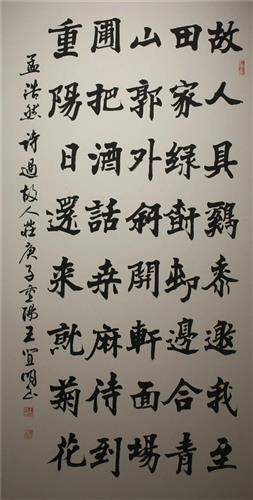 故人具鷄黍邀我至
田家緑樹邨邊合青
山郭外斜開軒面塲
圃把酒話桒麻待到
重陽日還来就菊花
孟浩然诗過故人莊庚子重陽王宜明书